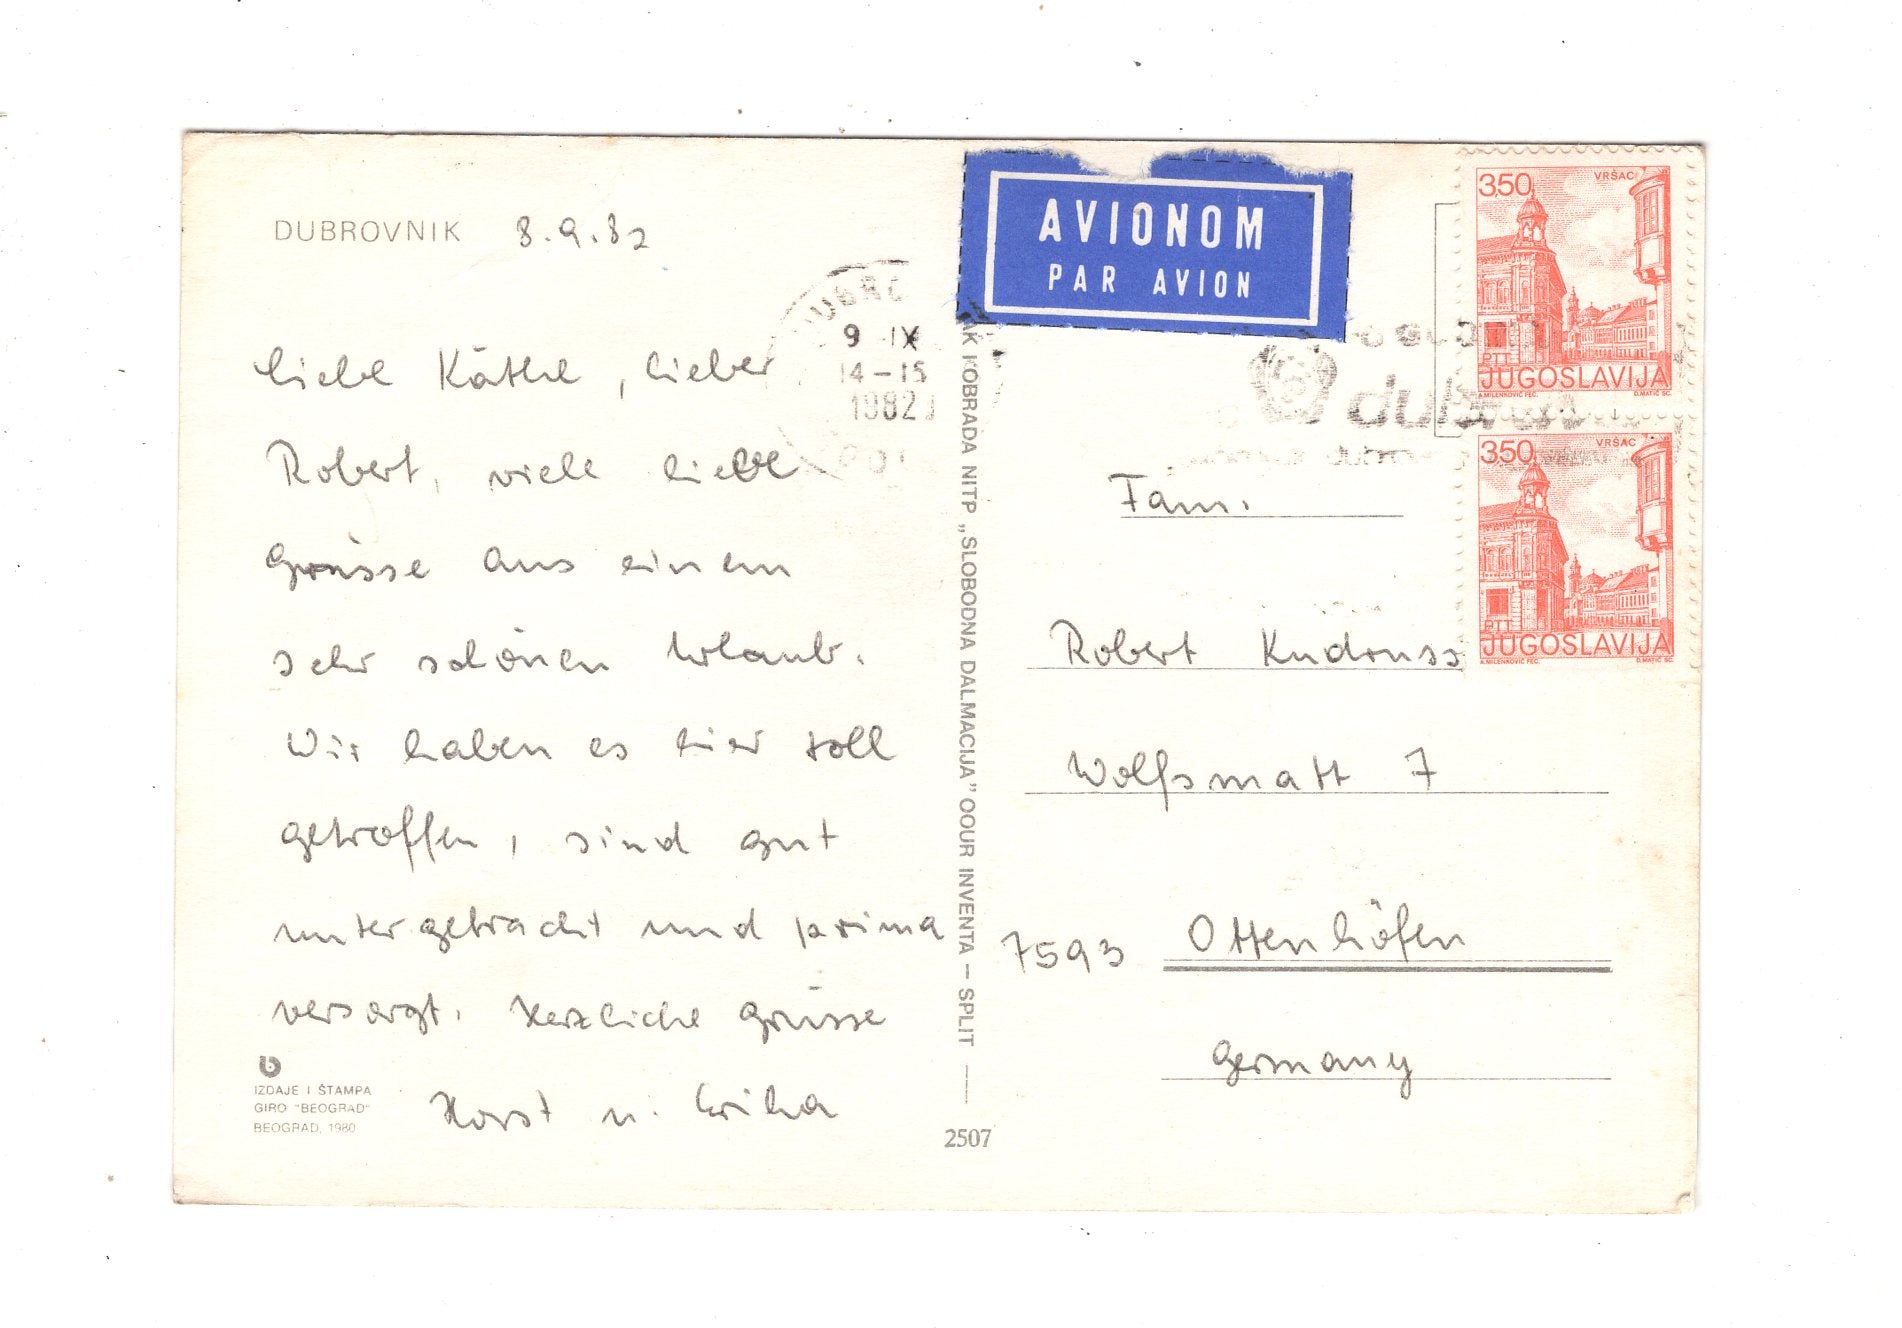 DUBROVNIK 8.9.82
Liebe Käthe, lieber
Robert, viele liebe
Grüsse aus einem
sehr schönen Urlaub.
Wir haben es hier toll
getroffen, sind gut
untergebracht und prima
versorgt. Herzliche Grüsse
Horst u. Erika
IZDAJE I ŠTAMPA
GIRO "BEOGRAD"
BEOGRAD, 1980
9 IX
14-15
1982
AK KOBRADA NITP „SLOBODNA DALMACIJA” OOUR INVENTA — SPLIT —
2507
AVIONOM
PAR AVION
3,50 VRŠAC
PTT
JUGOSLAVIJA
A.MILENKOVIĆ FEC. D.MATIĆ SC.
3,50 VRŠAC
PTT
JUGOSLAVIJA
A.MILENKOVIĆ FEC. D.MATIĆ SC.
Fam.
Robert Kudruss
Wolfsmatt 7
7593 Ottenhöfen
Germany